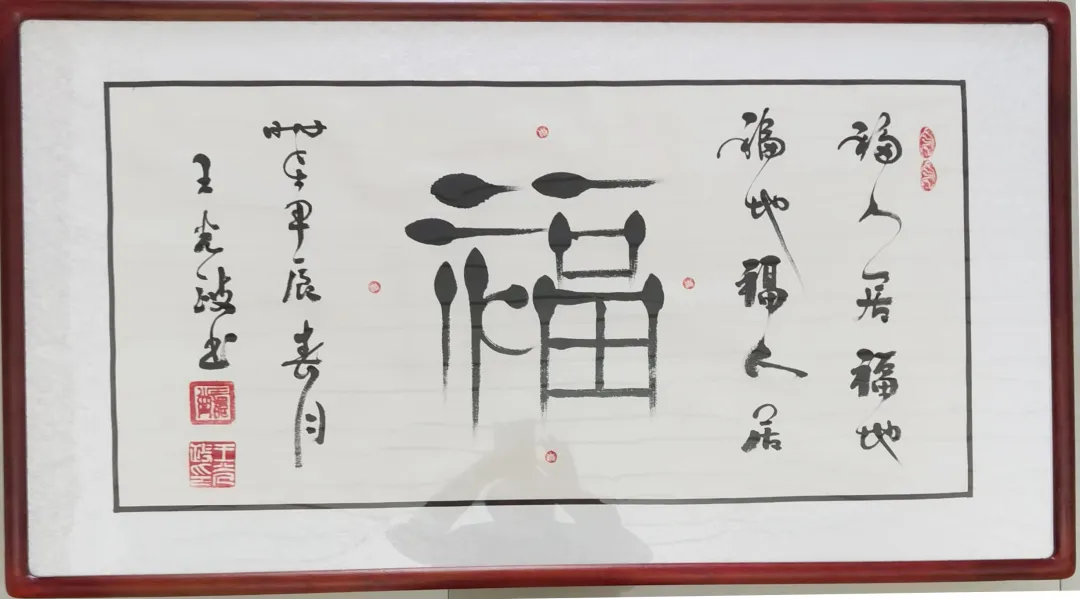 福人居福地
福地福人居
福
甲辰春月
王光波书